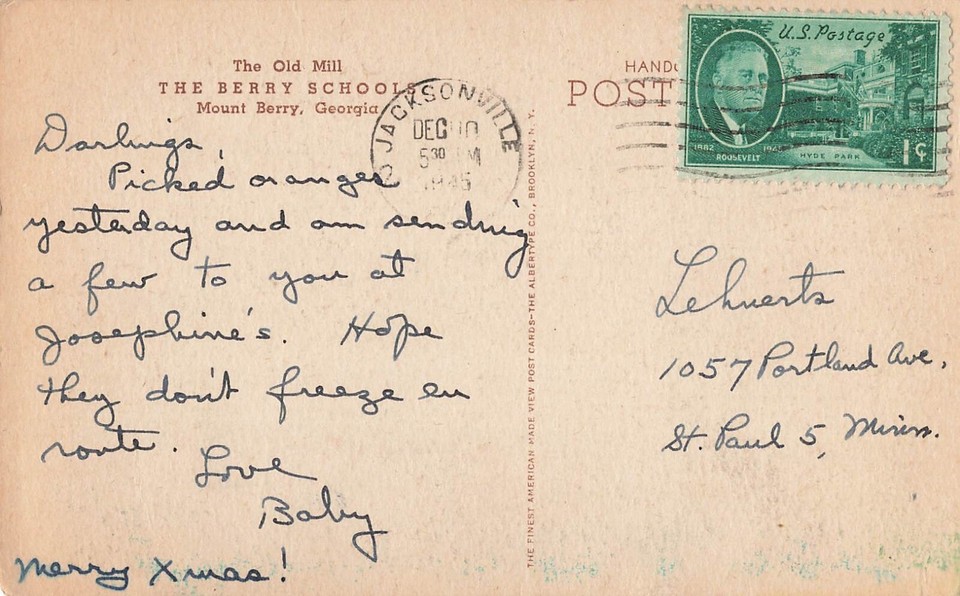 The Old Mill
THE BERRY SCHOOLS
Mount Berry, Georgia
Darlings,
Picked oranges
yesterday and am sending
a few to you at
Josephine's. Hope
they don't freeze en
route.
Love
Baby
Merry Xmas!
JACKSONVILLE
DEC 10
5 30 M
1945
THE FINEST AMERICAN MADE VIEW POST CARDS—THE ALBERTYPE CO., BROOKLYN, N. Y.
HANDC
POST
U.S. Postage
1882 1945
ROOSEVELT
HYDE PARK
1¢
Lehnerts
1057 Portland Ave.
St. Paul 5, Minn.